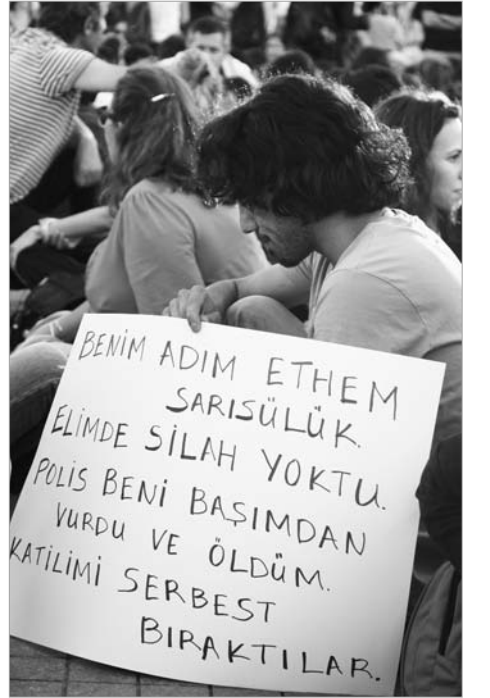 BENİM ADIM ETHEM
SARISÜLÜK.
ELİMDE SİLAH YOKTU.
POLİS BENİ BAŞIMDAN
VURDU VE ÖLDÜM.
KATİLİMİ SERBEST
BIRAKTILAR.